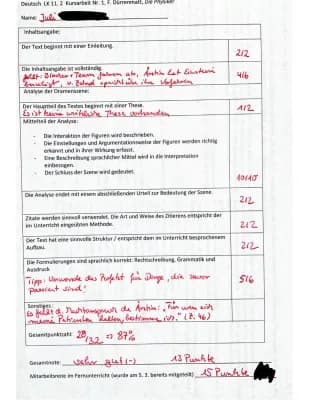 Deutsch LK 11, 2 Kursarbeit Nr. 1, F. Dürrenmatt, Die Physiker
Name: Juli
Inhaltsangabe:
Der Text beginnt mit einer Einleitung.
2/2
Die Inhaltsangabe ist vollständig.
fehlt: Blocher + Team fahren ab, Ärztin hat Einstein
4/6
Analyse der Dramenszene:
Der Hauptteil des Textes beginnt mit einer These.
1/2
Es ist keine These vorhanden
Mittelteil der Analyse:
- Die Interaktion der Figuren wird beschrieben.
- Die Einstellungen und Argumentationsweise der Figuren werden richtig
erkannt und in ihrer Wirkung erfasst.
- Eine Beschreibung sprachlicher Mittel wird in die Interpretation
einbezogen.
- Der Schluss der Szene wird gedeutet.
10/10
Die Analyse endet mit einem abschließenden Urteil zur Bedeutung der Szene.
2/2
Zitate werden sinnvoll verwendet. Die Art und Weise des Zitierens entspricht der
im Unterricht eingeübten Methode.
2/2
Der Text hat eine sinnvolle Struktur / entspricht dem im Unterricht besprochenen
Aufbau.
2/2
Die Formulierungen sind sprachlich korrekt: Rechtschreibung, Grammatik und
Ausdruck
5/6
Tipp: Verwende das Perfekt für Dinge, die zuvor
passiert sind!
Sonstiges:
Es fehlt d. Machtanspruch der Ärztin: "Für wen sich
meine Patienten halten, bestimme ich." (Z. 46)
Gesamtpunktzahl: 28/32 => 87%
Gesamtnote: sehr gut (-) 13 Punkte
Mitarbeitsnote im Fernunterricht (wurde am 5. 3. bereits mitgeteilt) 15 Punkte